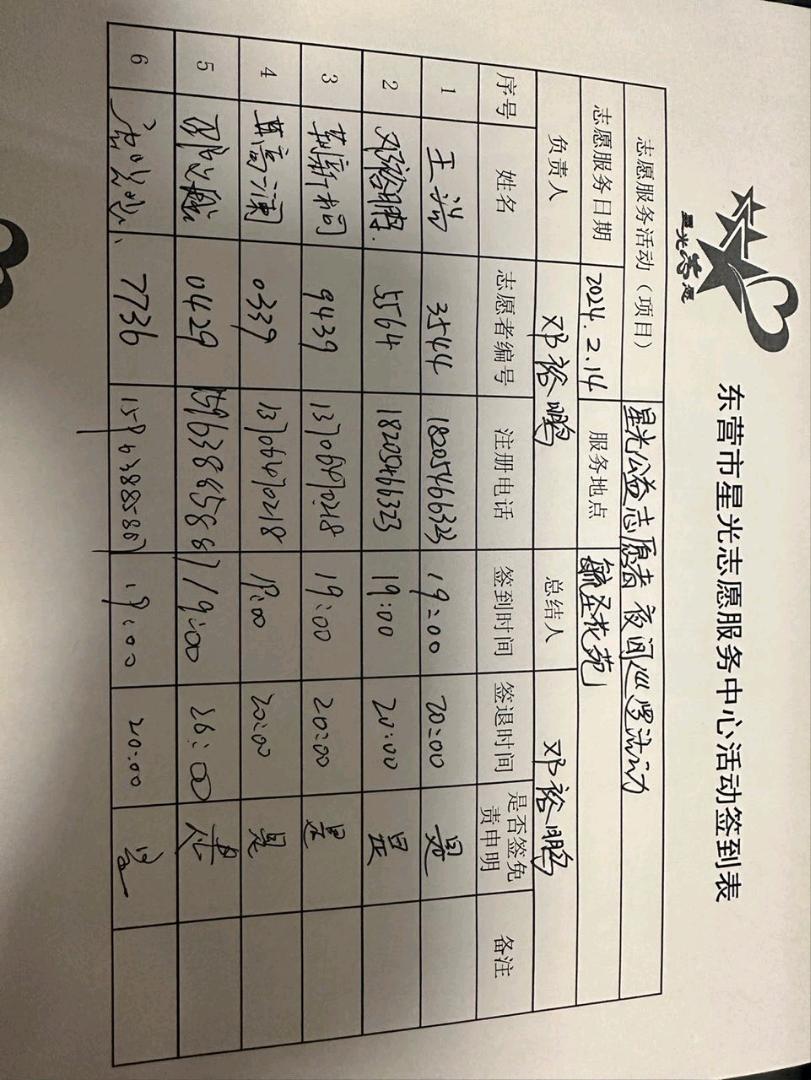 星光梦想
东营市星光志愿服务中心活动签到表
志愿服务活动（项目） 星光公益志愿者夜间巡逻活动
志愿服务日期 2024.2.14 服务地点 毓圣花苑
负责人 邓裕鹏 总结人 邓裕鹏
序号 姓名 志愿者编号 注册电话 签到时间 签退时间 是否签免责申明 备注
1 王浩 3544 18205466323 19:00 20:00 是
2 邓裕鹏 5564 18205466323 19:00 20:00 是
3 9439 13706470218 19:00 20:00 是
4 0339 13706470218 19:00 20:00 是
5 0429 19:00 20:00
6 7736 19:00 20:00 是